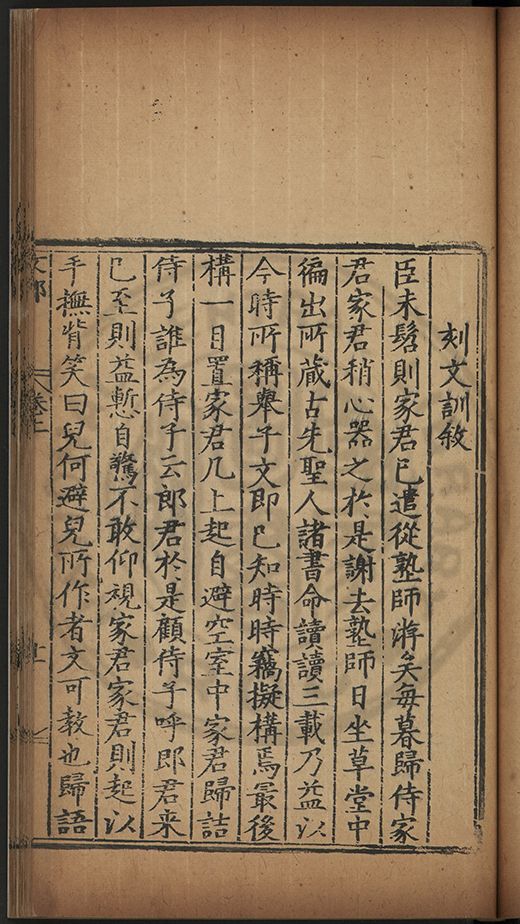 刻文訓敘
臣未髫則家君已遣從塾師游矣每暮歸侍家
君家君稍心器之於是謝去塾師日坐草堂中
徧出所蔵古先聖人諸書命讀讀三載乃益以
今時所稱舉子文即已知時時竊擬構焉最後
構一日置家君几上起自避空室中家君歸詰
侍子誰為侍子云郎君於是顧侍子呼郎君来
已至則益慙自驚不敢仰視家君家君則起以
手撫背笑曰兒何避兒所作者文可教也歸語